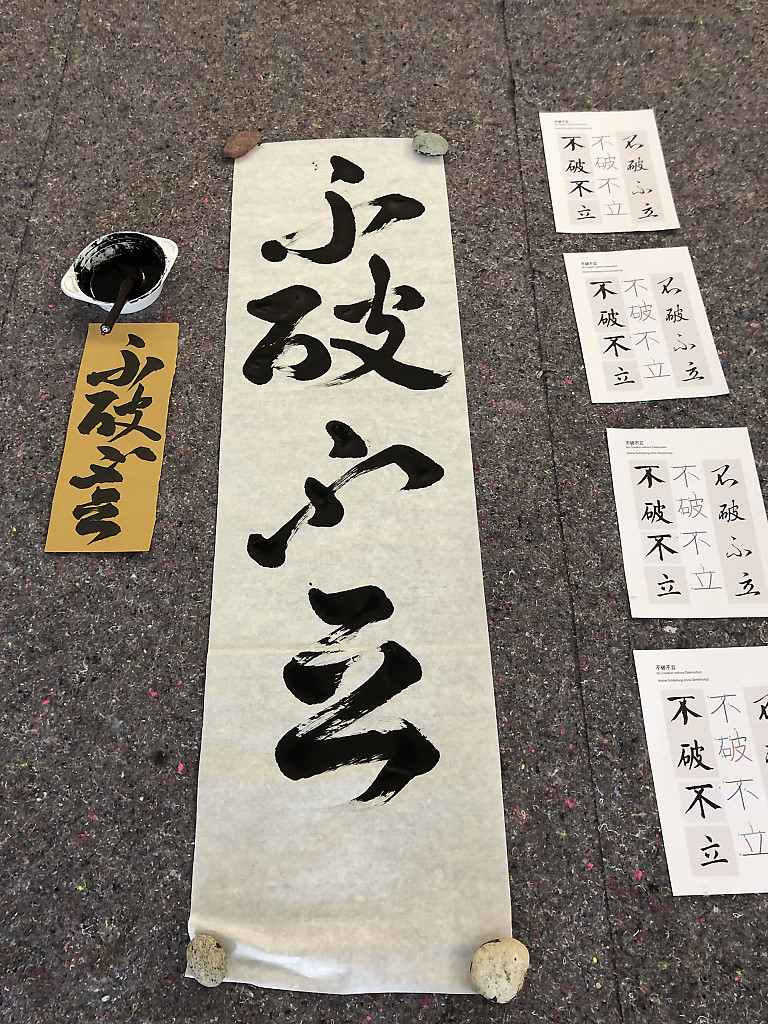 不破不立
不破不立
不破不立
不破不立
不破不立
不破不立
不破不立
不破不立
不破不立
不破不立
不破不立
No Creation without Destruction
(Keine Schöpfung ohne Zerstörung)
不破不立
不破不立
不破不立
不破不立
No Creation without Destruction
(Keine Schöpfung ohne Zerstörung)
不破不立
不破不立